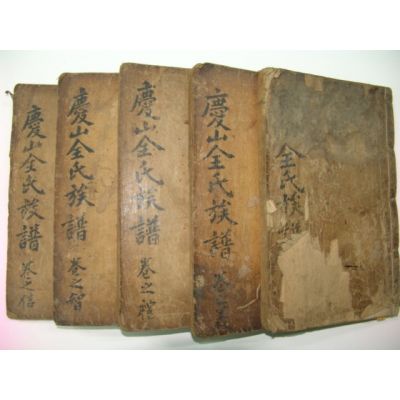 全氏族譜
慶山全氏族譜 卷之義
慶山全氏族譜 卷之禮
慶山全氏族譜 卷之智
慶山全氏族譜 卷之信